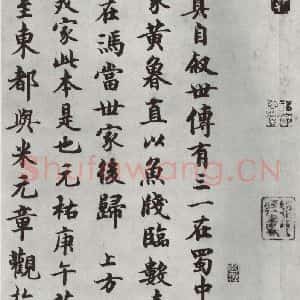 真自叙世傳有三一在蜀中
家黃魯直以魚牋臨數
在馮當世家後歸 上方
家此本是也元祐庚午
至東都與米元章觀於
Shufawang.CN